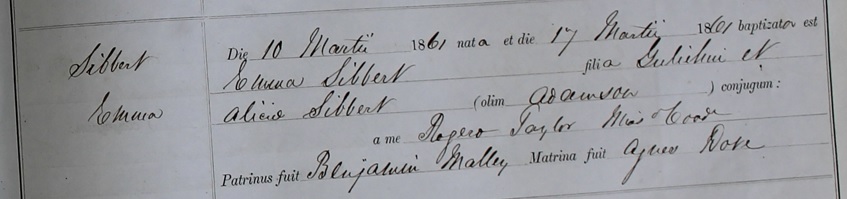 Sibbert
Emma
Die 10 Martii 1861 nata et die 17 Martii 1861 baptizata est
Emma Sibbert filia Gulielmi et
Aliciæ Sibbert (olim Adamson ) conjugum:
a me Rogero Taylor Miss Coad
Patrinus fuit Benjamin Malley Matrina fuit Agnes Dove